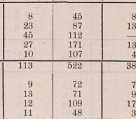 8 45 8
23 87 13
45 112
27 171 13
10 107 4
113 522 38
9 72 7
13 71 9
12 109 17
11 48 3